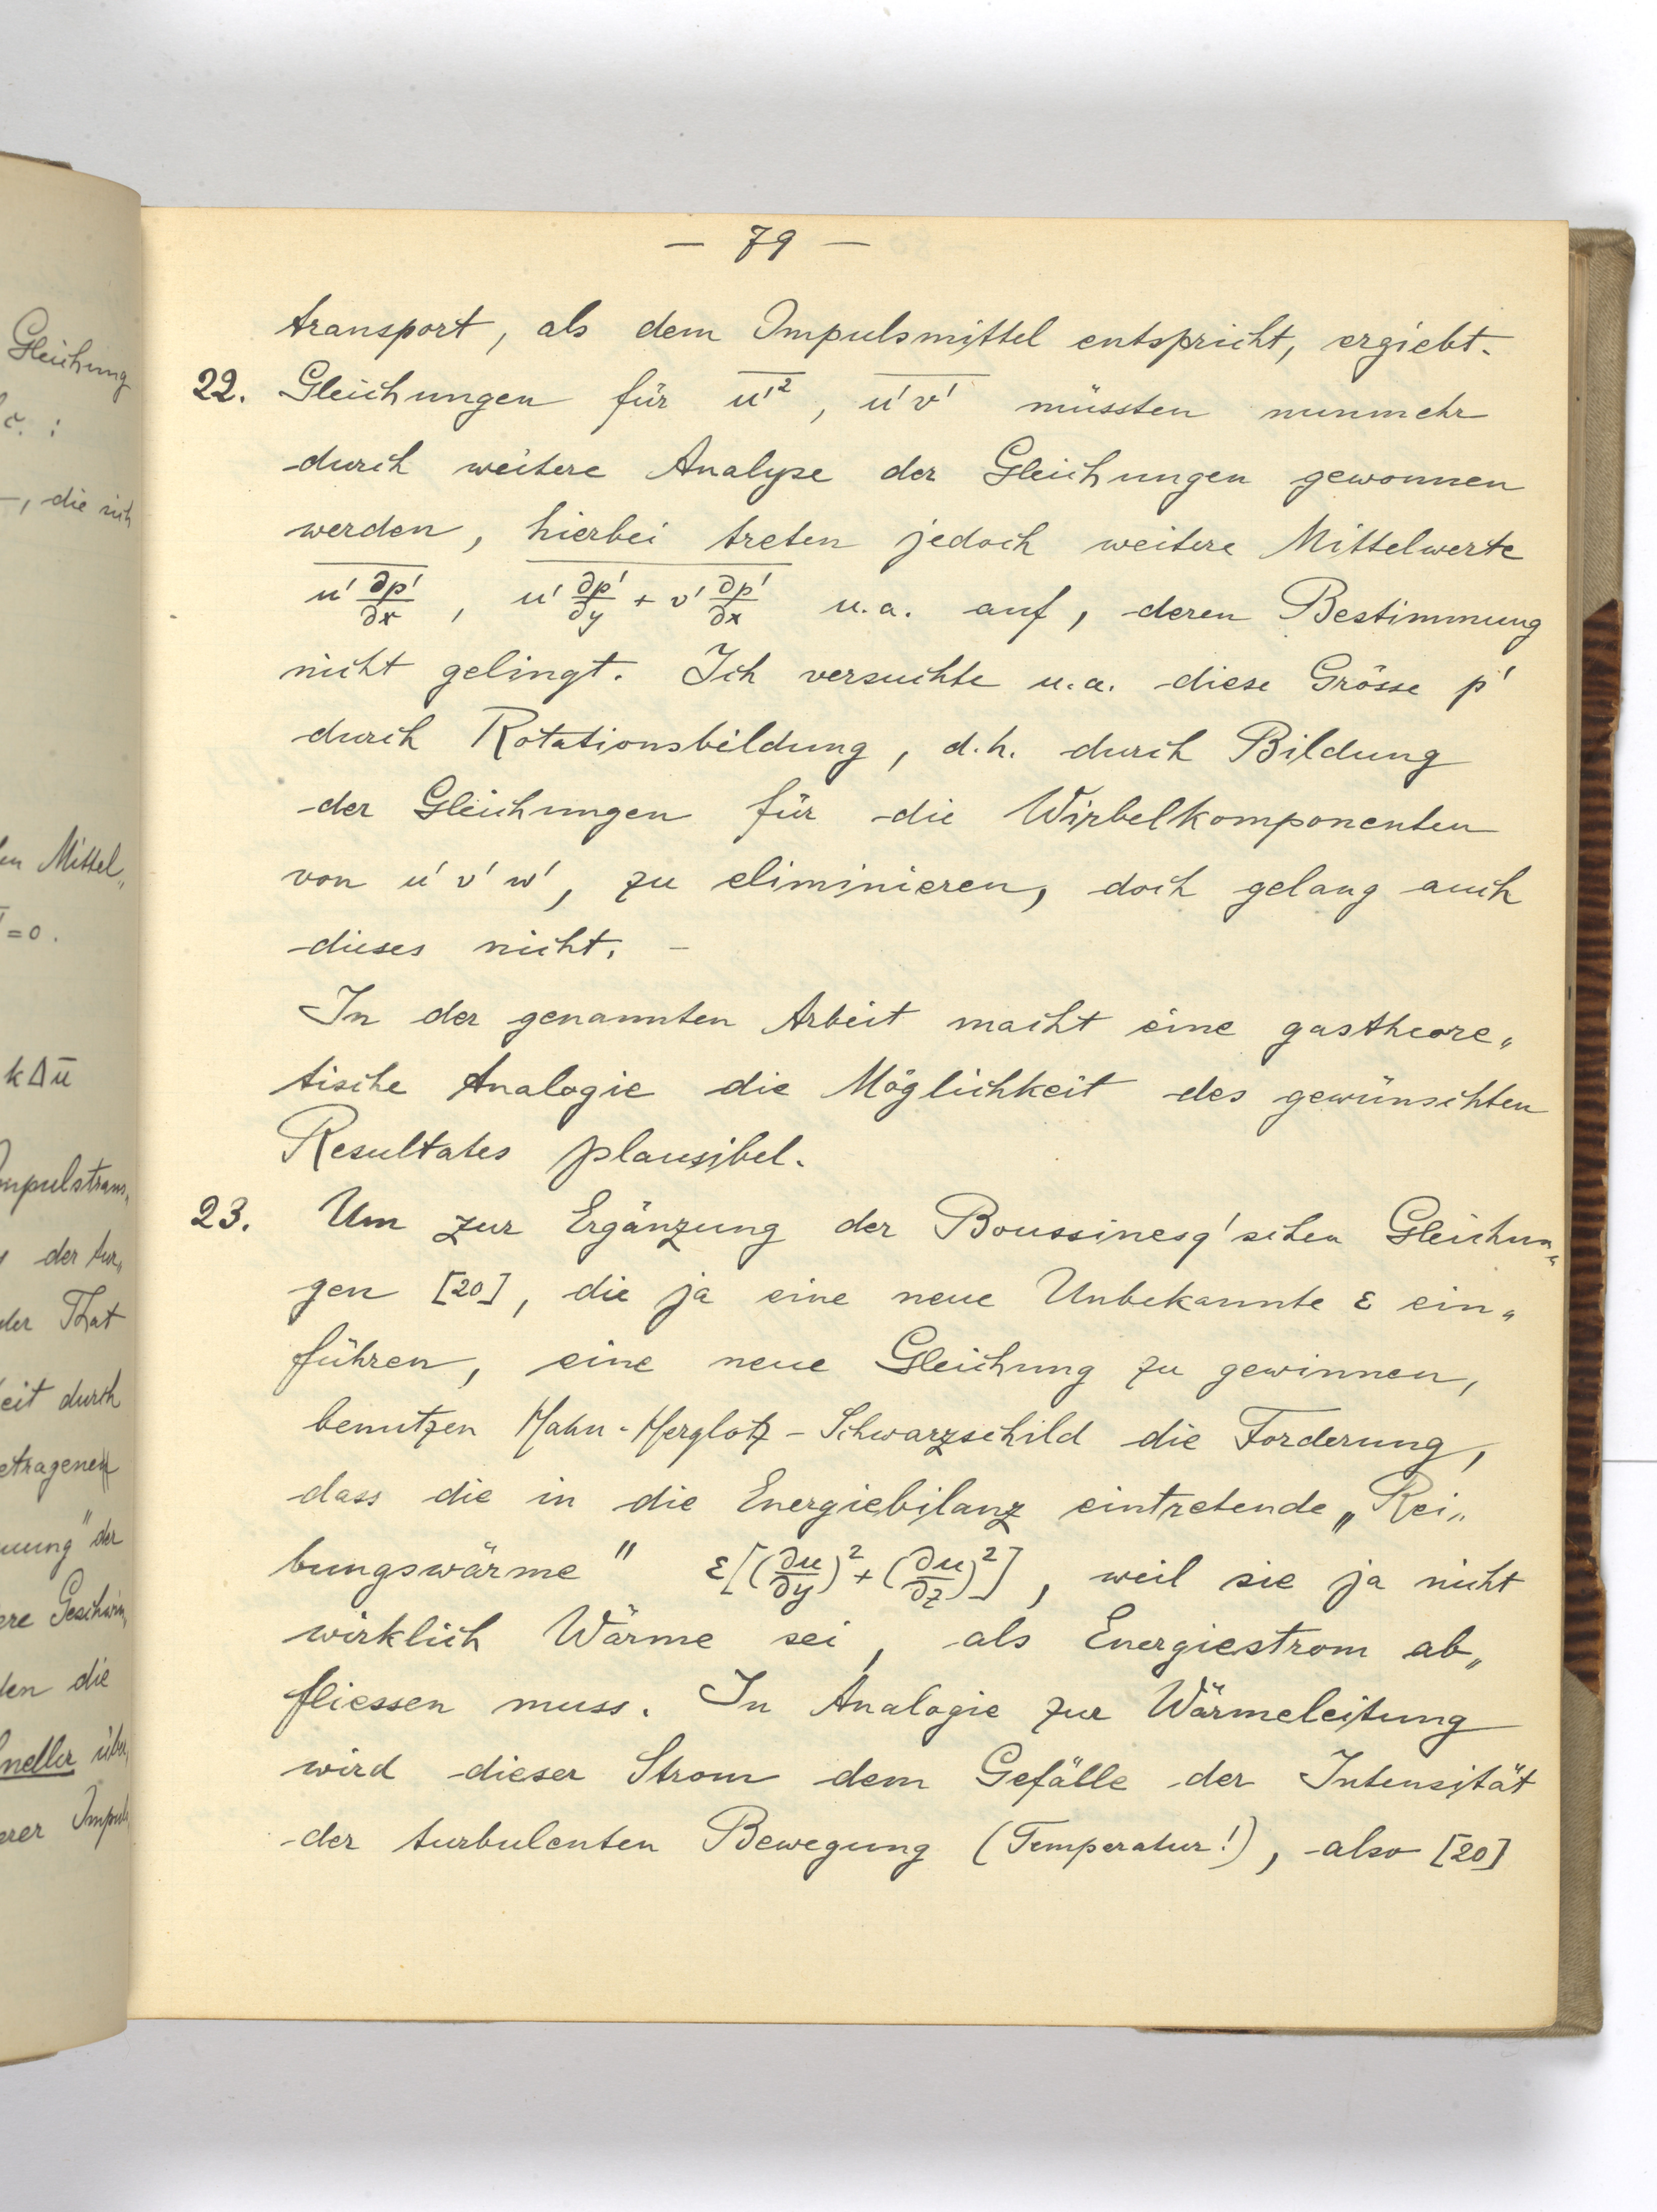 Gleichung
c. :
–, die sich
en Mittel„
=0.
k∆u̅
Impulstrans„
der tur„
der That
keit durch
etragenen
nung" der
ere Geschwin„
den die
neller über„
erer Impuls
— 79 —
transport, als dem Impulsmittel entspricht, ergiebt.
22. Gleichungen für \overline{u'^2}, \overline{u'v'} müssten nunmehr
durch weitere Analyse der Gleichungen gewonnen
werden, hierbei treten jedoch weitere Mittelwerte
\overline{u' \frac{∂p'}{∂x}}, \overline{u' \frac{∂p'}{∂y} + v' \frac{∂p'}{∂x}} u.a. auf, deren Bestimmung
nicht gelingt. Ich versuchte u.a. diese Grösse p'
durch Rotationsbildung, d.h. durch Bildung
der Gleichungen für die Wirbelkomponenten
von u' v' w', zu eliminieren, doch gelang auch
dieses nicht. –
In der genannten Arbeit macht eine gastheore„
tische Analogie die Möglichkeit des gewünschten
Resultates plausibel.
23. Um zur Ergänzung der Boussinesq'schen Gleichun„
gen [20], die ja eine neue Unbekannte ε ein„
führen, eine neue Gleichung zu gewinnen,
benutzen Hahn-Herglotz-Schwarzschild die Forderung,
dass die in die Energiebilanz eintretende „Rei„
bungswärme" ε[(\frac{∂u}{∂y})^2 + (\frac{∂u}{∂z})^2], weil sie ja nicht
wirklich Wärme sei, als Energiestrom ab„
fliessen muss. In Analogie zur Wärmeleitung
wird dieser Strom dem Gefälle der Intensität
der turbulenten Bewegung (Temperatur!), also [20]